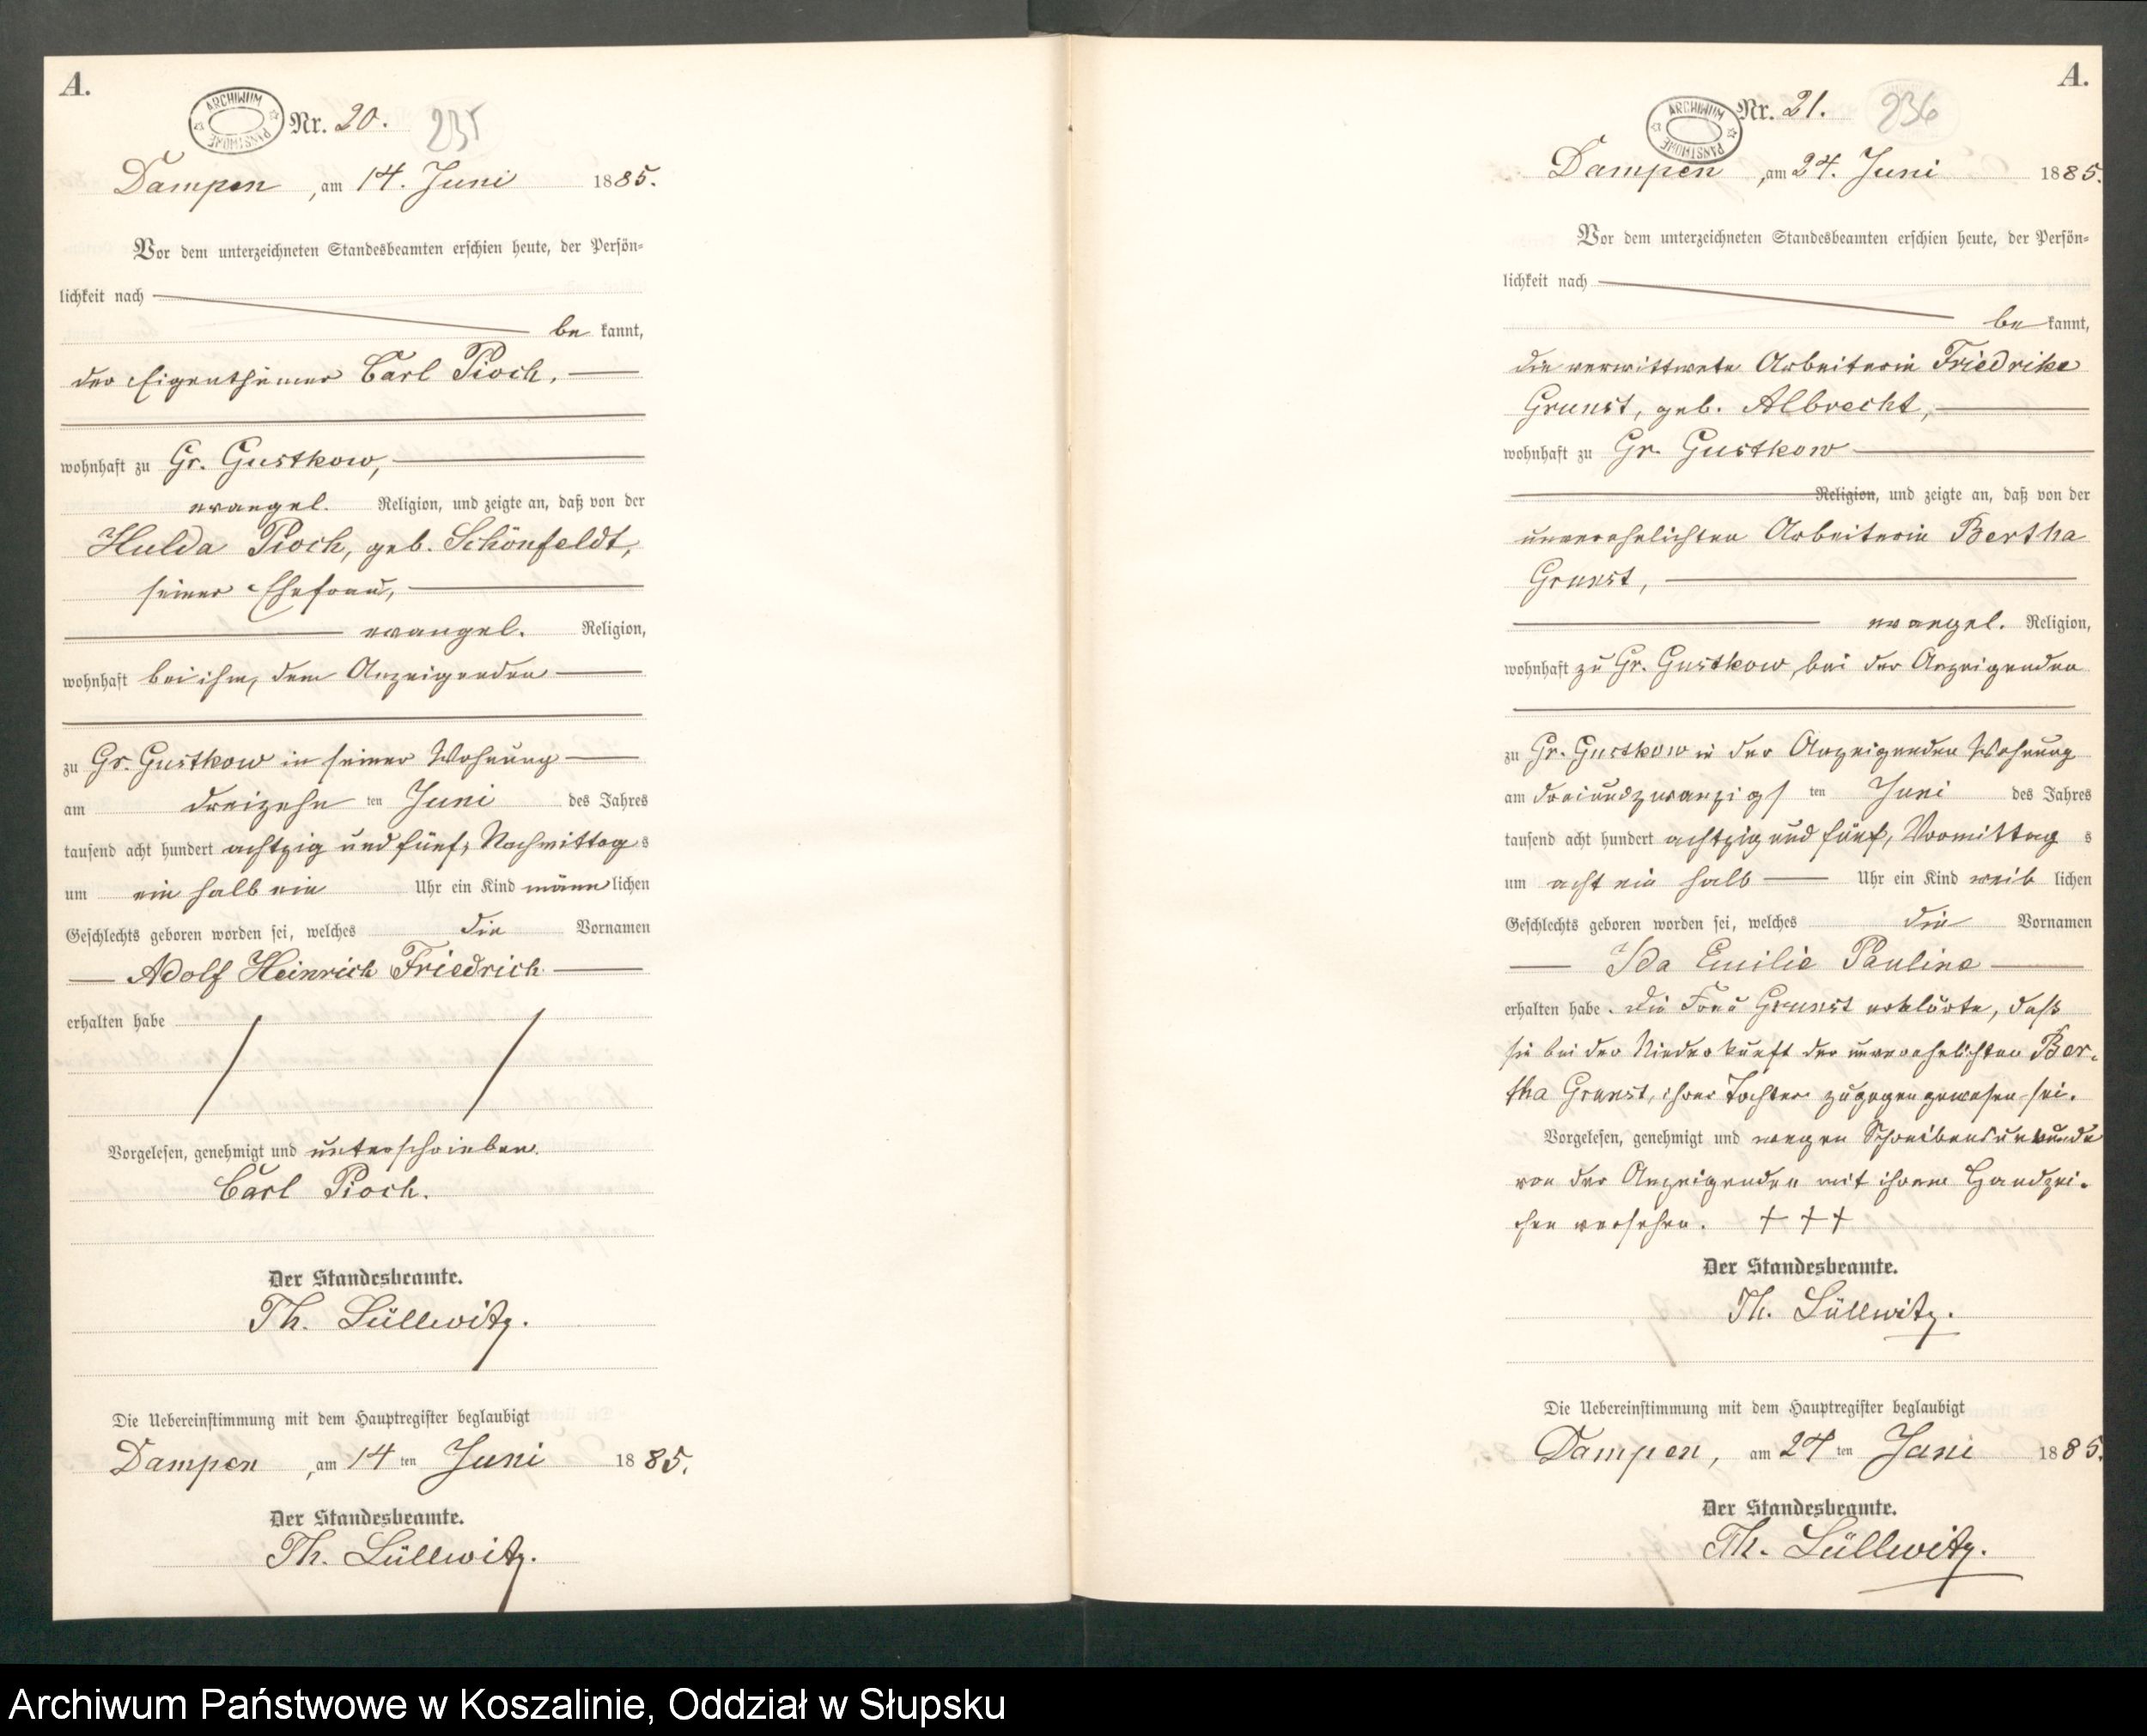 A.
ARCHIWUM PAŃSTWOWE
Nr. 20.
235
Dampen, am 14. Juni 1885.
Vor dem unterzeichneten Standesbeamten erschien heute, der Persön-
lichkeit nach
be kannt,
der Eigenthümer Carl Pioch,
wohnhaft zu Gr. Gustkow,
evangel. Religion, und zeigte an, daß von der
Hulda Pioch, geb. Schönfeldt,
seiner Ehefrau,
evangel. Religion,
wohnhaft bei ihm, dem Anzeigenden
zu Gr. Gustkow in seiner Wohnung
am dreizehn ten Juni des Jahres
tausend acht hundert achtzig und fünf, Nachmittag s
um ein halb ein Uhr ein Kind männ lichen
Geschlechts geboren worden sei, welches die Vornamen
Adolf Heinrich Friedrich
erhalten habe
Vorgelesen, genehmigt und unterschrieben.
Carl Pioch.
Der Standesbeamte.
Th. Lüllwitz.
Die Uebereinstimmung mit dem Hauptregister beglaubigt
Dampen, am 14 ten Juni 1885.
Der Standesbeamte.
Th. Lüllwitz.
A.
ARCHIWUM PAŃSTWOWE
Nr. 21.
236
Dampen, am 24. Juni 1885.
Vor dem unterzeichneten Standesbeamten erschien heute, der Persön-
lichkeit nach
be kannt,
die verwittwete Arbeiterin Friedrike
Grunst, geb. Albrecht,
wohnhaft zu Gr. Gustkow
Religion, und zeigte an, daß von der
unverehelichten Arbeiterin Bertha
Grunst,
evangel. Religion,
wohnhaft zu Gr. Gustkow, bei der Anzeigenden
zu Gr. Gustkow in der Anzeigenden Wohnung
am dreiundzwanzigs ten Juni des Jahres
tausend acht hundert achtzig und fünf, Vormittag s
um acht ein halb Uhr ein Kind weib lichen
Geschlechts geboren worden sei, welches die Vornamen
Ida Emilie Pauline
erhalten habe. Die Frau Grunst erklärte, daß
sie bei der Niederkunft der unverehelichten Ber-
tha Grunst, ihrer Tochter zugegen gewesen sei.
Vorgelesen, genehmigt und wegen Schreibensunkunde
von der Anzeigenden mit ihrem Handzei-
chen versehen. + + +
Der Standesbeamte.
Th. Lüllwitz.
Die Uebereinstimmung mit dem Hauptregister beglaubigt
Dampen, am 24 ten Juni 1885.
Der Standesbeamte.
Th. Lüllwitz.
Archiwum Państwowe w Koszalinie, Oddział w Słupsku